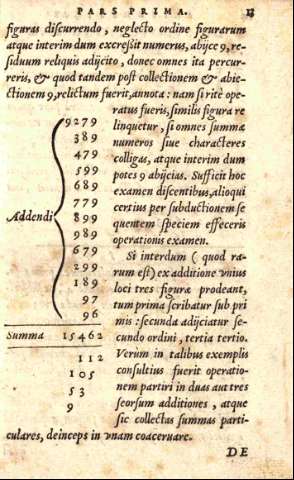 PARS PRIMA.
figuras discurrendo, neglecto ordine figurarum
atque interim dum excreſſit numerus, abijce 9, re-
ſiduum reliquis adijcito, donec omnes ita percur-
reris, & quod tandem post collectionem & abie-
ctionem 9, relictum fuerit, annota: nam ſi ritè ope-
ratus fueris, ſimilis figura re
linquetur, ſi omnes ſummæ
numeros ſiue characteres
colligas, atque interim dum
potes 9 abijcias. Sufficit hoc
examen diſcentibus, alioqui
certius per ſubductionem ſe
quentem ſpeciem effeceris
operationis examen.
Addendi
9279
389
479
599
689
779
899
989
679
299
189
97
96
Summa 15462
112
105
53
9
Si interdum ( quod ra-
rum eſt) ex additione vnius
loci tres figuræ prodeant,
tum prima ſcribatur ſub pri
mis: ſecunda adijciatur ſe-
cundo ordini, tertia tertio.
Verùm in talibus exemplis
conſultius fuerit operatio-
nem partiri in duas aut tres
ſeorſum additiones, atque
ſic collectas ſummas parti-
culares, deinceps in vnam coaceruare.
DE